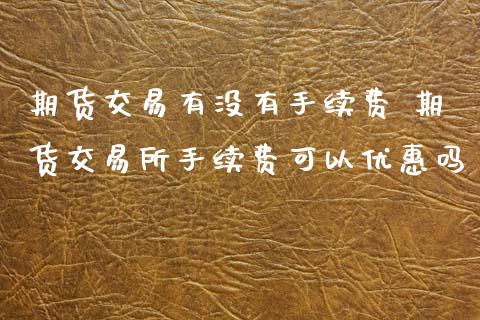 期货交易有没有手续费 期
货交易所手续费可以优惠吗